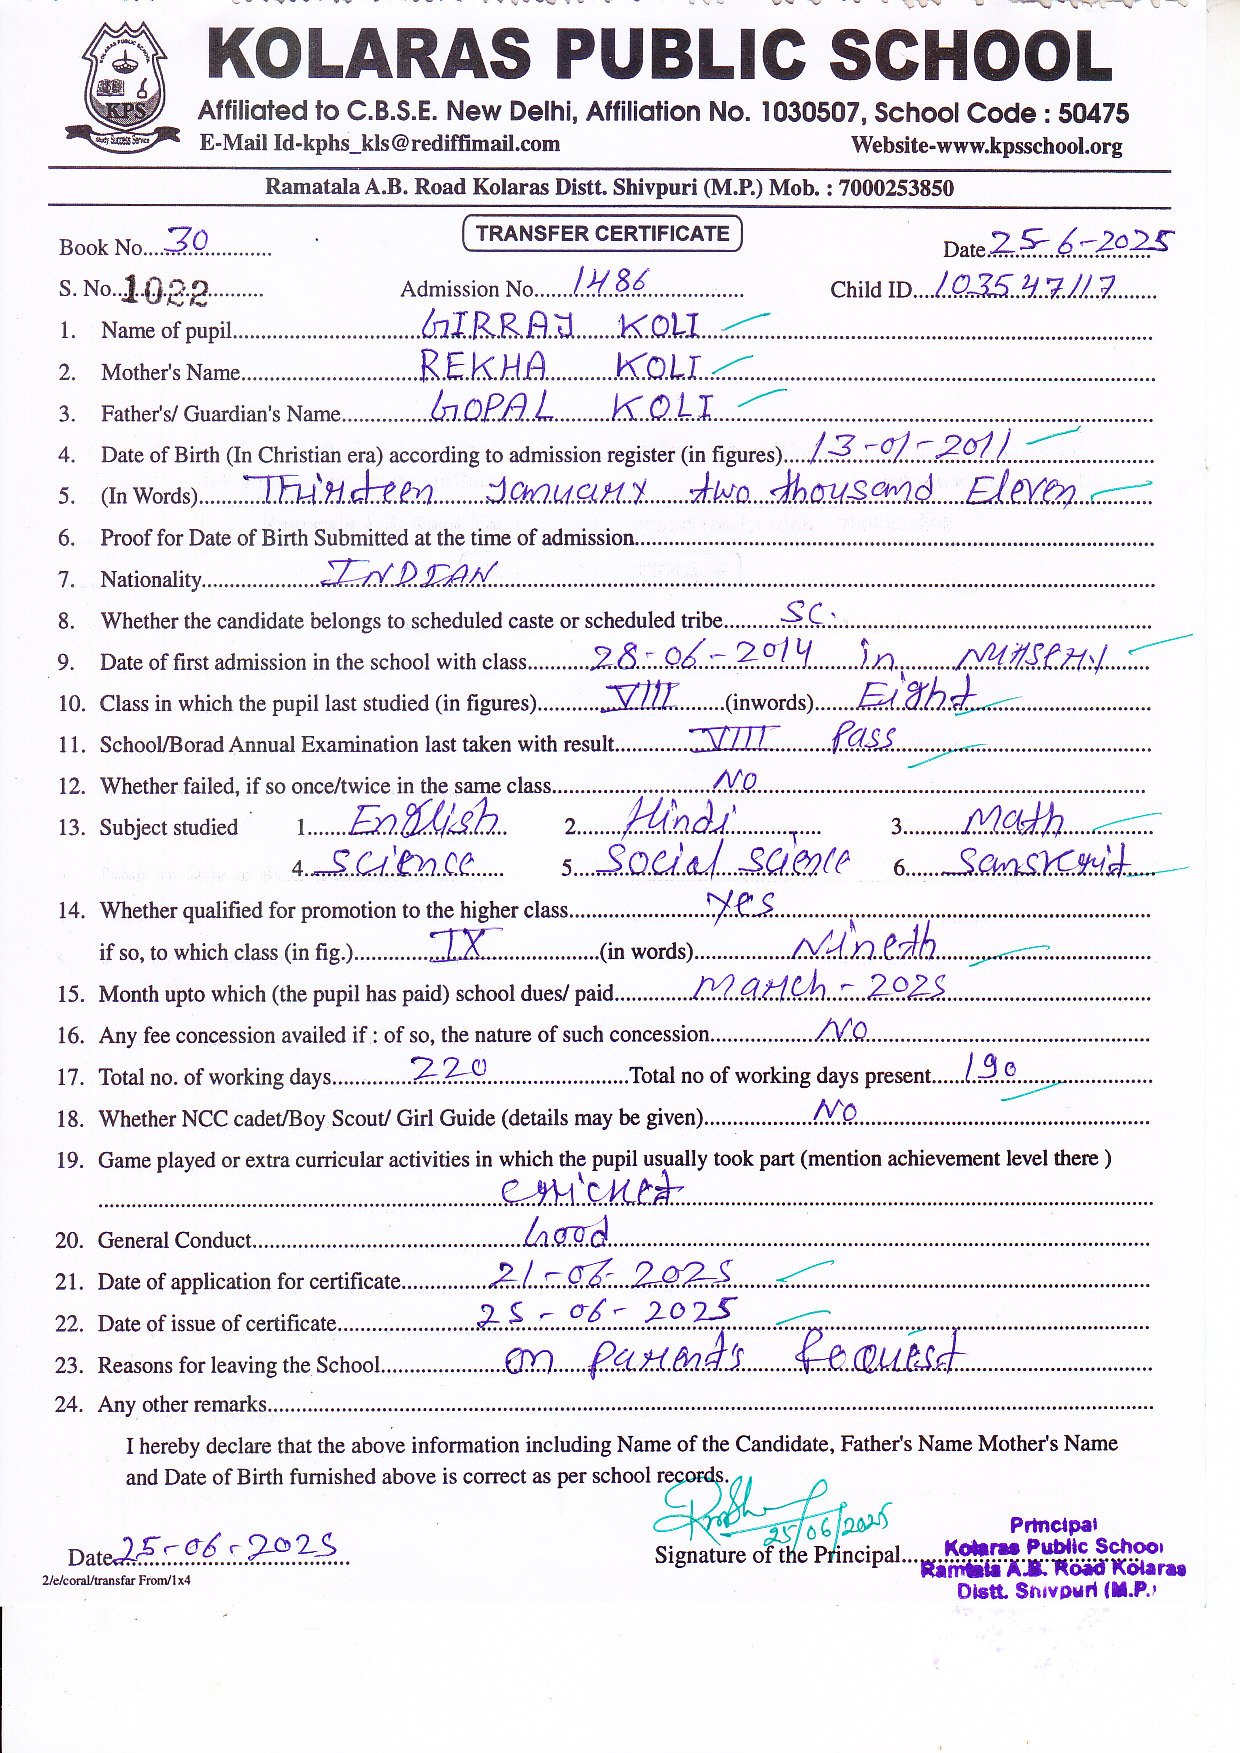 KOLARAS PUBLIC SCHOOL
KPS
Affiliated to C.B.S.E. New Delhi, Affiliation No. 1030507, School Code : 50475
E-Mail Id-kphs_kls@rediffimail.com Website-www.kpsschool.org
Ramatala A.B. Road Kolaras Distt. Shivpuri (M.P.) Mob. : 7000253850
Book No....30 TRANSFER CERTIFICATE Date 25-6-2025
S. No. 1022 Admission No. 1486 Child ID 103547117
1. Name of pupil GIRRAJ KOLI
2. Mother's Name REKHA KOLI
3. Father's/ Guardian's Name GOPAL KOLI
4. Date of Birth (In Christian era) according to admission register (in figures) 13-01-2011
5. (In Words) Thirteen January two thousand Eleven
6. Proof for Date of Birth Submitted at the time of admission
7. Nationality INDIAN
8. Whether the candidate belongs to scheduled caste or scheduled tribe SC.
9. Date of first admission in the school with class 28-06-2014 in Nursery
10. Class in which the pupil last studied (in figures) VIII (inwords) Eight
11. School/Borad Annual Examination last taken with result VIII Pass
12. Whether failed, if so once/twice in the same class NO
13. Subject studied 1. English 2. Hindi 3. Math
4. Science 5. Social science 6. Sanskrit
14. Whether qualified for promotion to the higher class Yes
if so, to which class (in fig.) IX (in words) Nineth
15. Month upto which (the pupil has paid) school dues/ paid March - 2025
16. Any fee concession availed if : of so, the nature of such concession NO
17. Total no. of working days 220 Total no of working days present 190
18. Whether NCC cadet/Boy Scout/ Girl Guide (details may be given) NO
19. Game played or extra curricular activities in which the pupil usually took part (mention achievement level there )
cricket
20. General Conduct Good
21. Date of application for certificate 21-06-2025
22. Date of issue of certificate 25-06-2025
23. Reasons for leaving the School on parent's Request
24. Any other remarks
I hereby declare that the above information including Name of the Candidate, Father's Name Mother's Name
and Date of Birth furnished above is correct as per school records.
25/06/2025
Date 25-06-2025 Signature of the Principal
Principal
Kolaras Public School
Ramtala A.B. Road Kolaras
Distt. Shivpuri (M.P.)
2/e/coral/transfar From/1x4